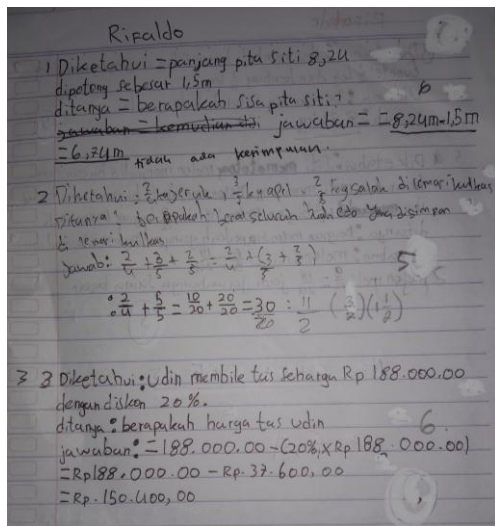 Rifaldo
1 Diketahui = panjang pita siti 8,24
dipotong sebesar 1,5m
ditanya = berapakah sisa pita siti?
6
jawaban = =8,24m-1,5m
=6,74m tidak ada kesimpulan.
2 Diketahui : 2/4 kg jeruk, 3/5 kg apel 2/5 kg salak di lemari kulkas
Ditanya : berapakah berat seluruh buah edo yang disimpan
di lemari kulkas
Jawab: 2/4 + 3/5 + 2/5 = 2/4 + (3 + 2
: 2/4 + 5/5 = 10/20 + 20/20 = 30/20 :
5
3 3 Diketahui : Udin membile tas seharga Rp 188.000.00
dengan diskon 20%.
ditanya : berapakah harga tas udin
6.
jawaban : = 188.000.00 - (20% x Rp 188.000.00)
=Rp188.000.00 - Rp. 37.600,00
=Rp. 150.400,00